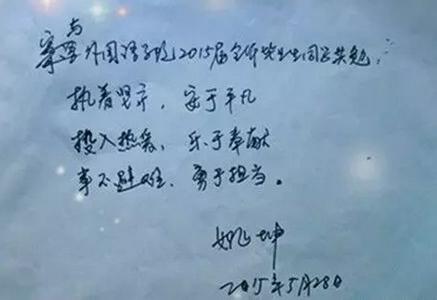 与
外国语学院2015届全体毕业生同学共勉:
执着坚守,安于平凡
投入热爱,乐于奉献
事不避难、勇于担当。
姚坤
2015年5月28日